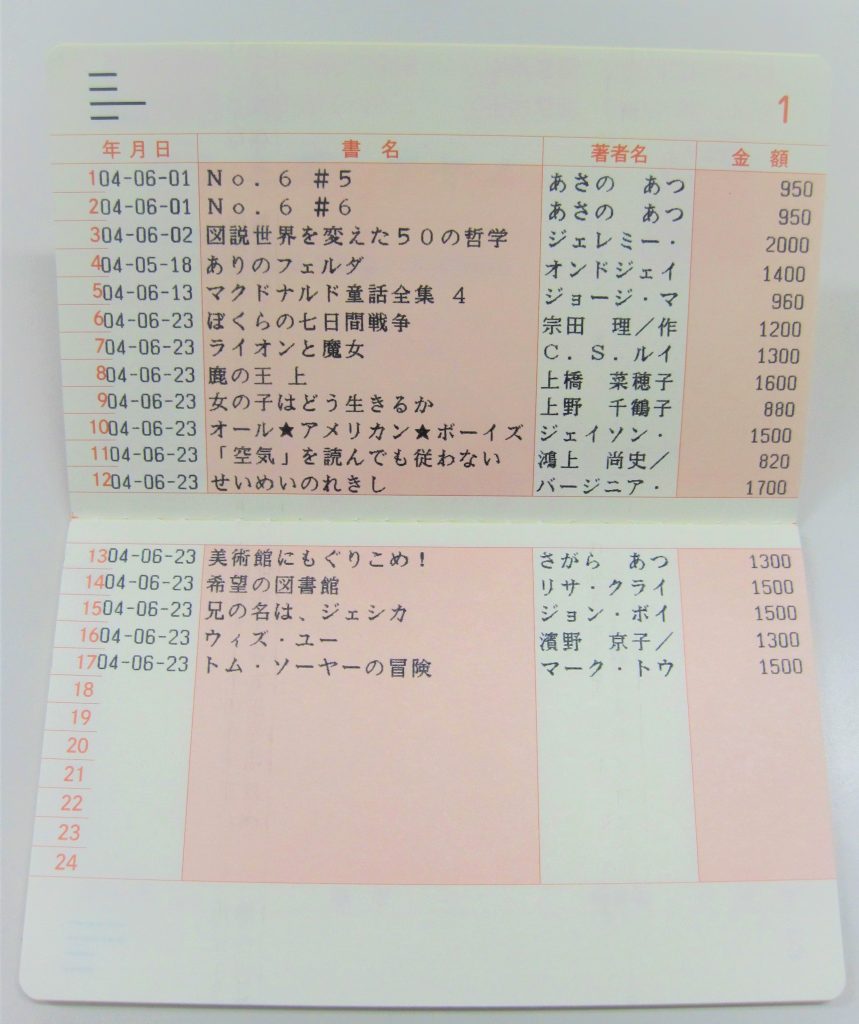 1
年月日 書名 著者名 金額
1 04-06-01 No.6 #5 あさの あつ 950
2 04-06-01 No.6 #6 あさの あつ 950
3 04-06-02 図説世界を変えた50の哲学 ジェレミー・ 2000
4 04-05-18 ありのフェルダ オンドジェイ 1400
5 04-06-13 マクドナルド童話全集 4 ジョージ・マ 960
6 04-06-23 ぼくらの七日間戦争 宗田 理/作 1200
7 04-06-23 ライオンと魔女 C.S.ルイ 1300
8 04-06-23 鹿の王 上 上橋 菜穂子 1600
9 04-06-23 女の子はどう生きるか 上野 千鶴子 880
10 04-06-23 オール★アメリカン★ボーイズ ジェイソン・ 1500
11 04-06-23 「空気」を読んでも従わない 鴻上 尚史/ 820
12 04-06-23 せいめいのれきし バージニア・ 1700
13 04-06-23 美術館にもぐりこめ! さがら あつ 1300
14 04-06-23 希望の図書館 リサ・クライ 1500
15 04-06-23 兄の名は、ジェシカ ジョン・ボイ 1500
16 04-06-23 ウィズ・ユー 濱野 京子/ 1300
17 04-06-23 トム・ソーヤーの冒険 マーク・トウ 1500
18
19
20
21
22
23
24